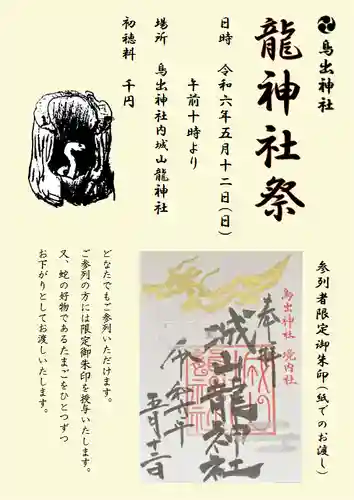 鳥出神社
龍神社祭
日時 令和六年五月十二日(日)
午前十時より
場所 鳥出神社内城山龍神社
初穂料 千円
参列者限定御朱印(紙でのお渡し)
鳥出神社 境内社
奉拝
城山龍神社
令和六年
五月十二日
どなたでもご参列いただけます。
ご参列の方には限定御朱印を授与いたします。
又、蛇の好物であるたまごをひとつずつ
お下がりとしてお渡しいたします。